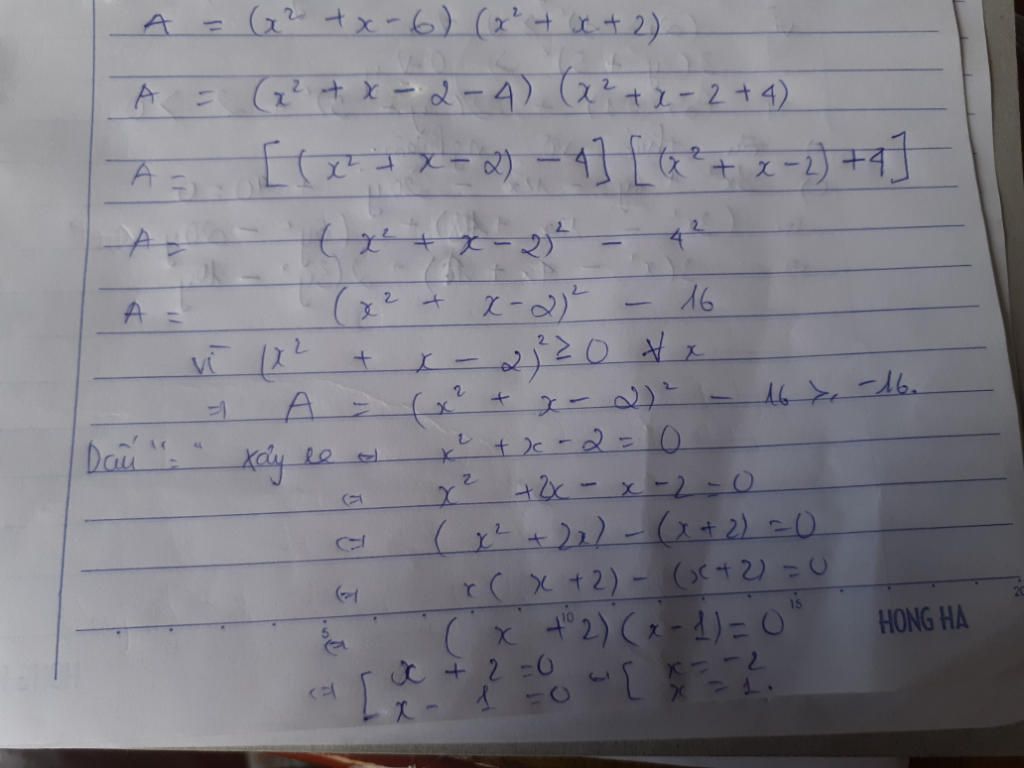 A = (x² + x - 6) (x² + x + 2)
A = (x² + x - 2 - 4) (x² + x - 2 + 4)
A = [(x² + x - 2) - 4] [(x² + x - 2) + 4]
A = (x² + x - 2)² - 4²
A = (x² + x - 2)² - 16
vì (x² + x - 2)² ≥ 0 ∀ x
⇒ A = (x² + x - 2)² - 16 ≥ -16.
Dấu "=" xảy ra ⇔ x² + x - 2 = 0
⇔ x² + 2x - x - 2 = 0
⇔ (x² + 2x) - (x + 2) = 0
⇔ x(x + 2) - (x + 2) = 0
⇔ (x + 2)(x - 1) = 0
⇔ [ x + 2 = 0 ⇔ [ x = -2
x - 1 = 0 x = 1.
5 10 15 20
HONG HA